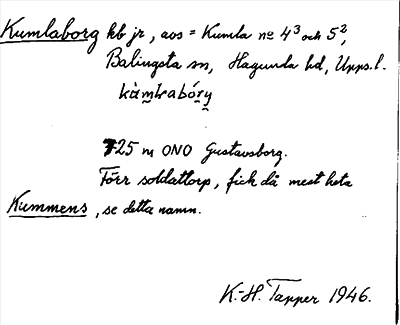 Kumlaborg kb jr, aos = Kumla no 4³ och 5²,
Balingsta sn, Hagunda hd, Upps. l.
kùmlabóry
725 m ONO Gustavsborg.
Förr soldattorp, fick då mest heta
Kummens, se detta namn.
K.-H. Tapper 1946.